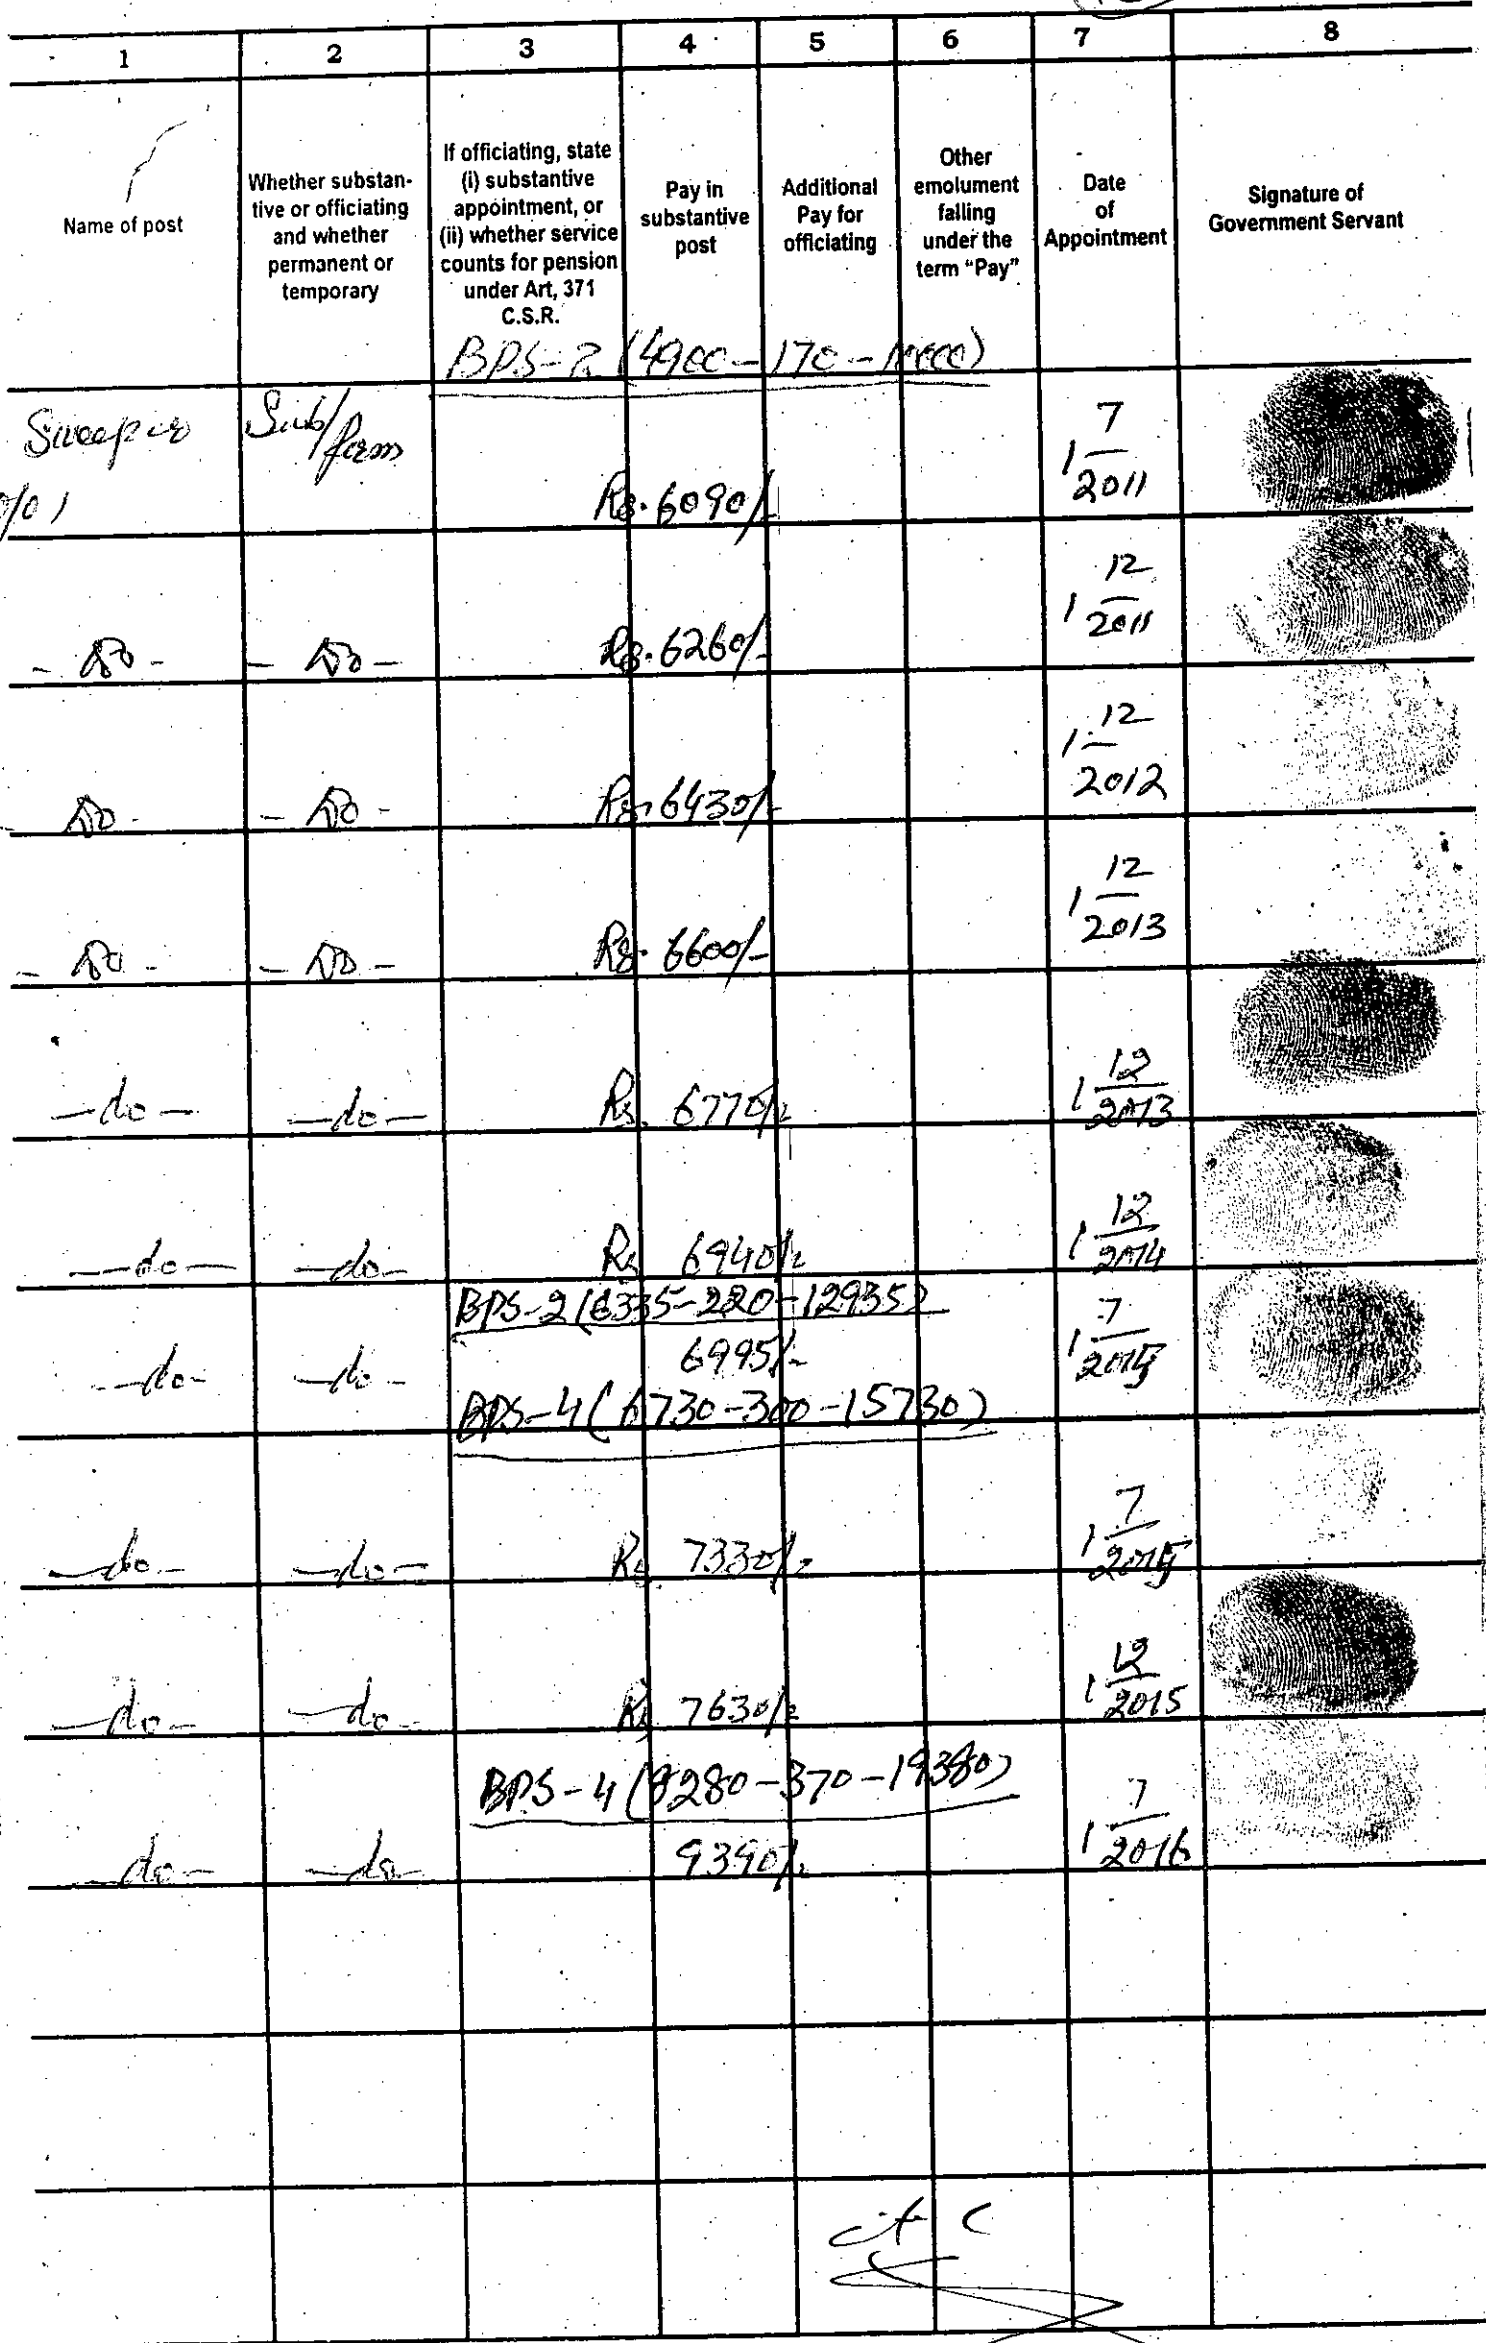 1 2 3 4 5 6 7 8
Name of post
Whether substan-
tive or officiating
and whether
permanent or
temporary
If officiating, state
(i) substantive
appointment, or
(ii) whether service
counts for pension
under Art, 371
C.S.R.
Pay in
substantive
post
Additional
Pay for
officiating
Other
emolument
falling
under the
term "Pay"
Date
of
Appointment
Signature of
Government Servant
BPS-2 (4900-170-10000)
Sweeper Sub/perm Rs. 6090/- 1 7/2011
- Do - - Do - Rs. 6260/- 1 12/2011
Do - - Do - Rs. 6430/- 1 12/2012
- Do - - Do - Rs. 6600/- 1 12/2013
-do- -do- Rs. 6770/- 1 12/2013
-do- -do- Rs 6940/- 1 12/2014
BPS-2 (6335-220-12935)
-do- -do- 6995/- 1 7/2015
BPS-4 (6730-300-15730)
-do- -do- Rs. 7330/- 1 7/2015
-do- -do- Rs 7630/- 1 12/2015
BPS-4 (8280-370-19380)
-do- -do- 9390/- 1 7/2016